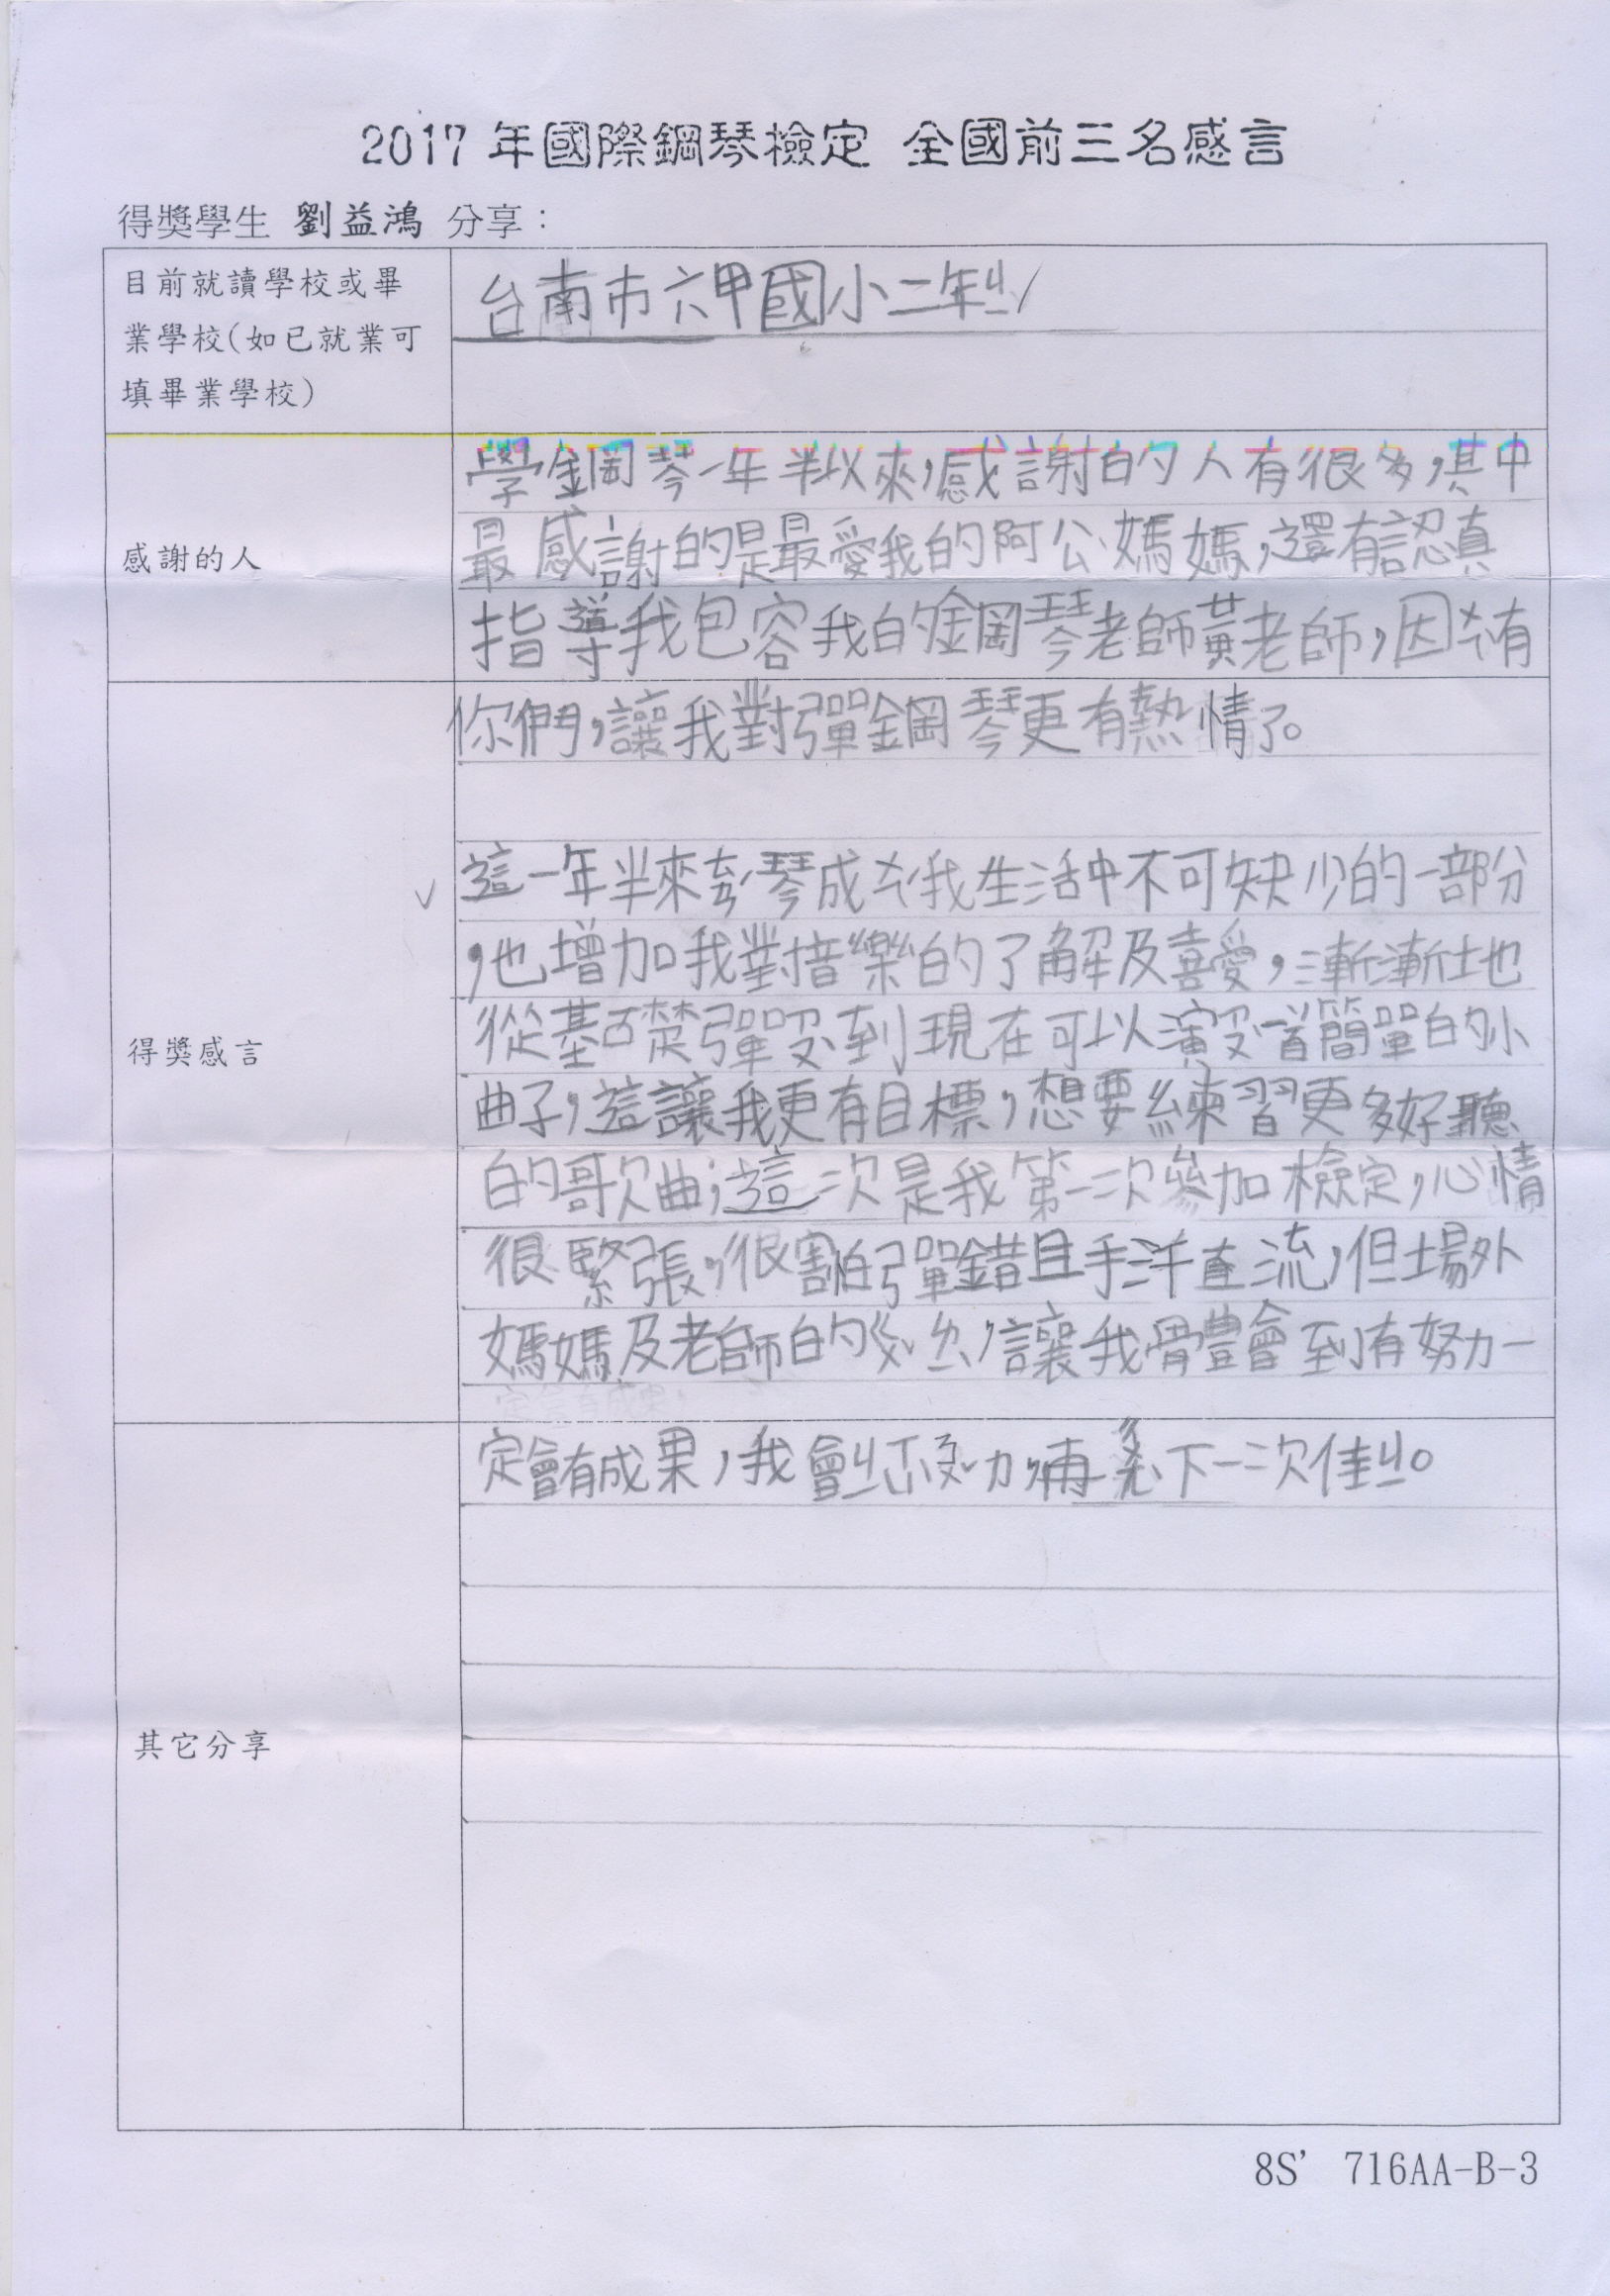 2017 年國際鋼琴檢定 全國前三名感言
得獎學生 劉益鴻 分享：
目前就讀學校或畢
業學校(如已就業可
填畢業學校)
台南市六甲國小二年
感謝的人
學鋼琴一年半以來，感謝的人有很多，其中
最感謝的是最愛我的阿公、媽媽，還有認真
指導我包容我的鋼琴老師黃老師，因ㄨㄟˋ有
你們，讓我對彈鋼琴更有熱情了。
得獎感言
這一年半來，琴成ㄨㄟˊ我生活中不可缺少的一部分
，也增加我對音樂的了解及喜愛，漸漸地
從基礎彈ㄗㄡˋ到現在可以演ㄗㄡˋ一首簡單的小
曲子，這讓我更有目標，想要練習更多好聽
的歌曲，這次是我第一次參加檢定，心情
很緊張，很害怕彈錯且手汗直流，但場外
媽媽及老師的，讓我體會到有努力一
定會有成果，我會ㄐㄧˋ，再下一次佳ㄐㄧ。
其它分享
8S' 716AA-B-3